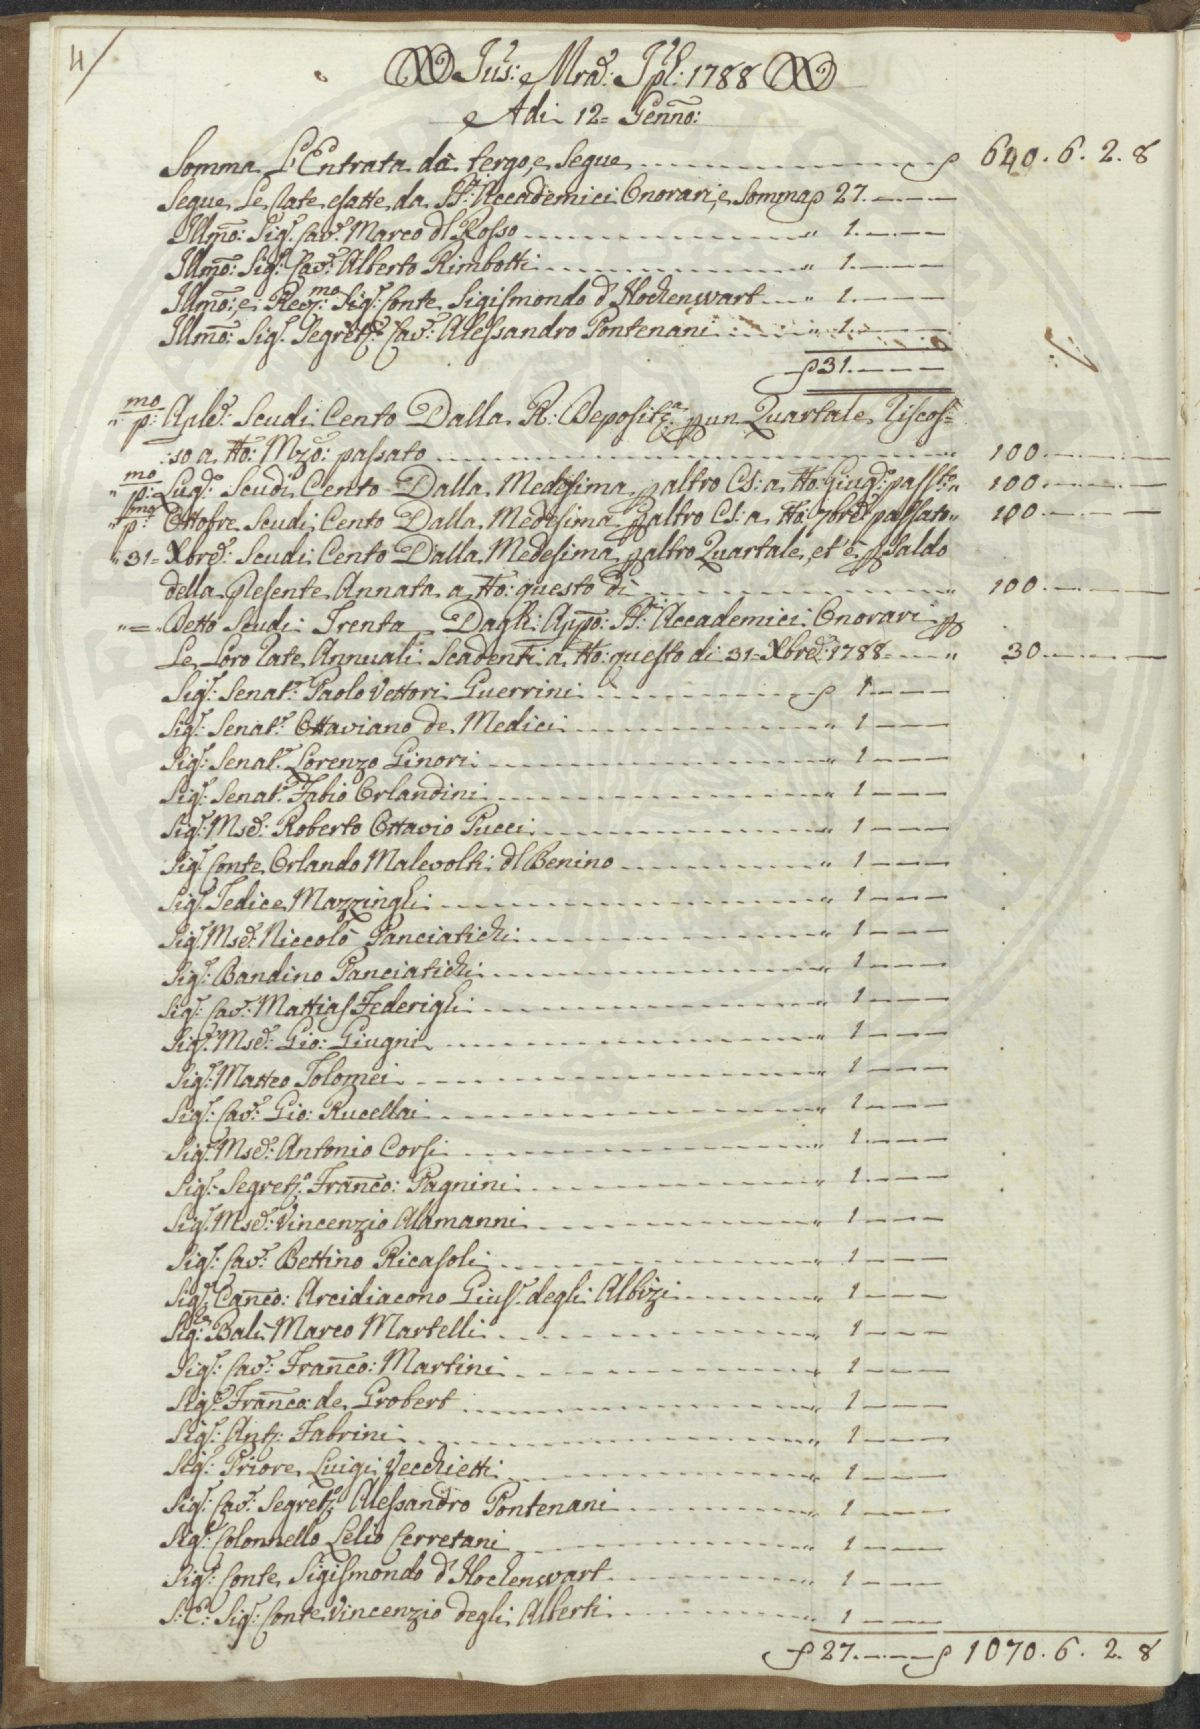 4/
Jus: Mrā: Jpl: 1788
Adi 12= Genno:
Somma L'Entrata da tergo, e Segue 640. 6. 2. 8
Segue Le tate esatte da SS:ri Accademici Onorari, e Somma 27.
Illmo: Sig.r Cav.r Marco dl Rosso 1.
Illmo: Sig.r Cav.r Alberto Rimbotti 1.
Illmo: e Rev:mo Sig.r Conte Sigismondo d'Hochenwart 1.
Illmo: Sig.r Segret.o Cav.r Alessandro Pontenani 1.
31.
" p:mo Aple: Scudi Cento Dalla R: Deposit:a p un Quartale Riscos=
:so a tto: Mzo: passato 100.
" p:mo Lug.o: Scudi Cento Dalla Medesima p altro CS: a tto: Giug.o: passt.o 100.
" p:mo Ottofre Scudi Cento Dalla Medesima p altro CS: a tto: 7bre: passato 100.
" 31= Xbre: Scudi Cento Dalla Medesima p altro Quartale, et è p Saldo
della presente Annata a tto: questo dì 100.
" = " Detto Scudi Trenta Dagli: Appo: SS:ri Accademici Onorari p
Le Loro tate Annuali Scadenti a tto: questo di 31= Xbre: 1788 30.
Sig.r: Senat.r Paolo Vettori Guerrini 1
Sig.r: Senat.r Ottaviano de Medici 1
Sig.r: Senat.r Lorenzo Ginori 1
Sig.r: Senat.r Fabio Orlandini 1
Sig.r: Mse: Roberto Ottavio Pucci 1
Sig.r Conte Orlando Malevolti dl Benino 1
Sig.r Tedice Mazzinghi 1
Sig.r Mse: Niccolò Panciatichi 1
Sig.r: Bandino Panciatichi 1
Sig.r: Cav.r: Mattias Federighi 1
Sig.r: Mse: Gio: Giugni 1
Sig.r: Matteo Tolomei 1
Sig.r: Cav.r: Gio: Rucellai 1
Sig.r: Mse: Antonio Corsi 1
Sig.r: Segret.o Franco: Pagnini 1
Sig.r: Mse: Vincenzio Alamanni 1
Sig.r: Cav.r: Bettino Ricasoli 1
Sig.r Canco: Arcidiacono Gius.e degli Albizi 1
Sig.r: Balì Marco Martelli 1
Sig.r: Cav.r: Franco: Martini 1
Sig.r: Franco: de Grobert 1
Sig.r: Ant.o: Fabrini 1
Sig.r: Priore Luigi Vecchietti 1
Sig.r: Cav.r Segret.o Alessandro Pontenani 1
Sig.r Colonnello Lelio Cerretani 1
Sig.r: Conte Sigismondo d'Hochenwart 1
S: E: Sig.r: Conte Vincenzio degli Alberti 1
27. 1070. 6. 2. 8